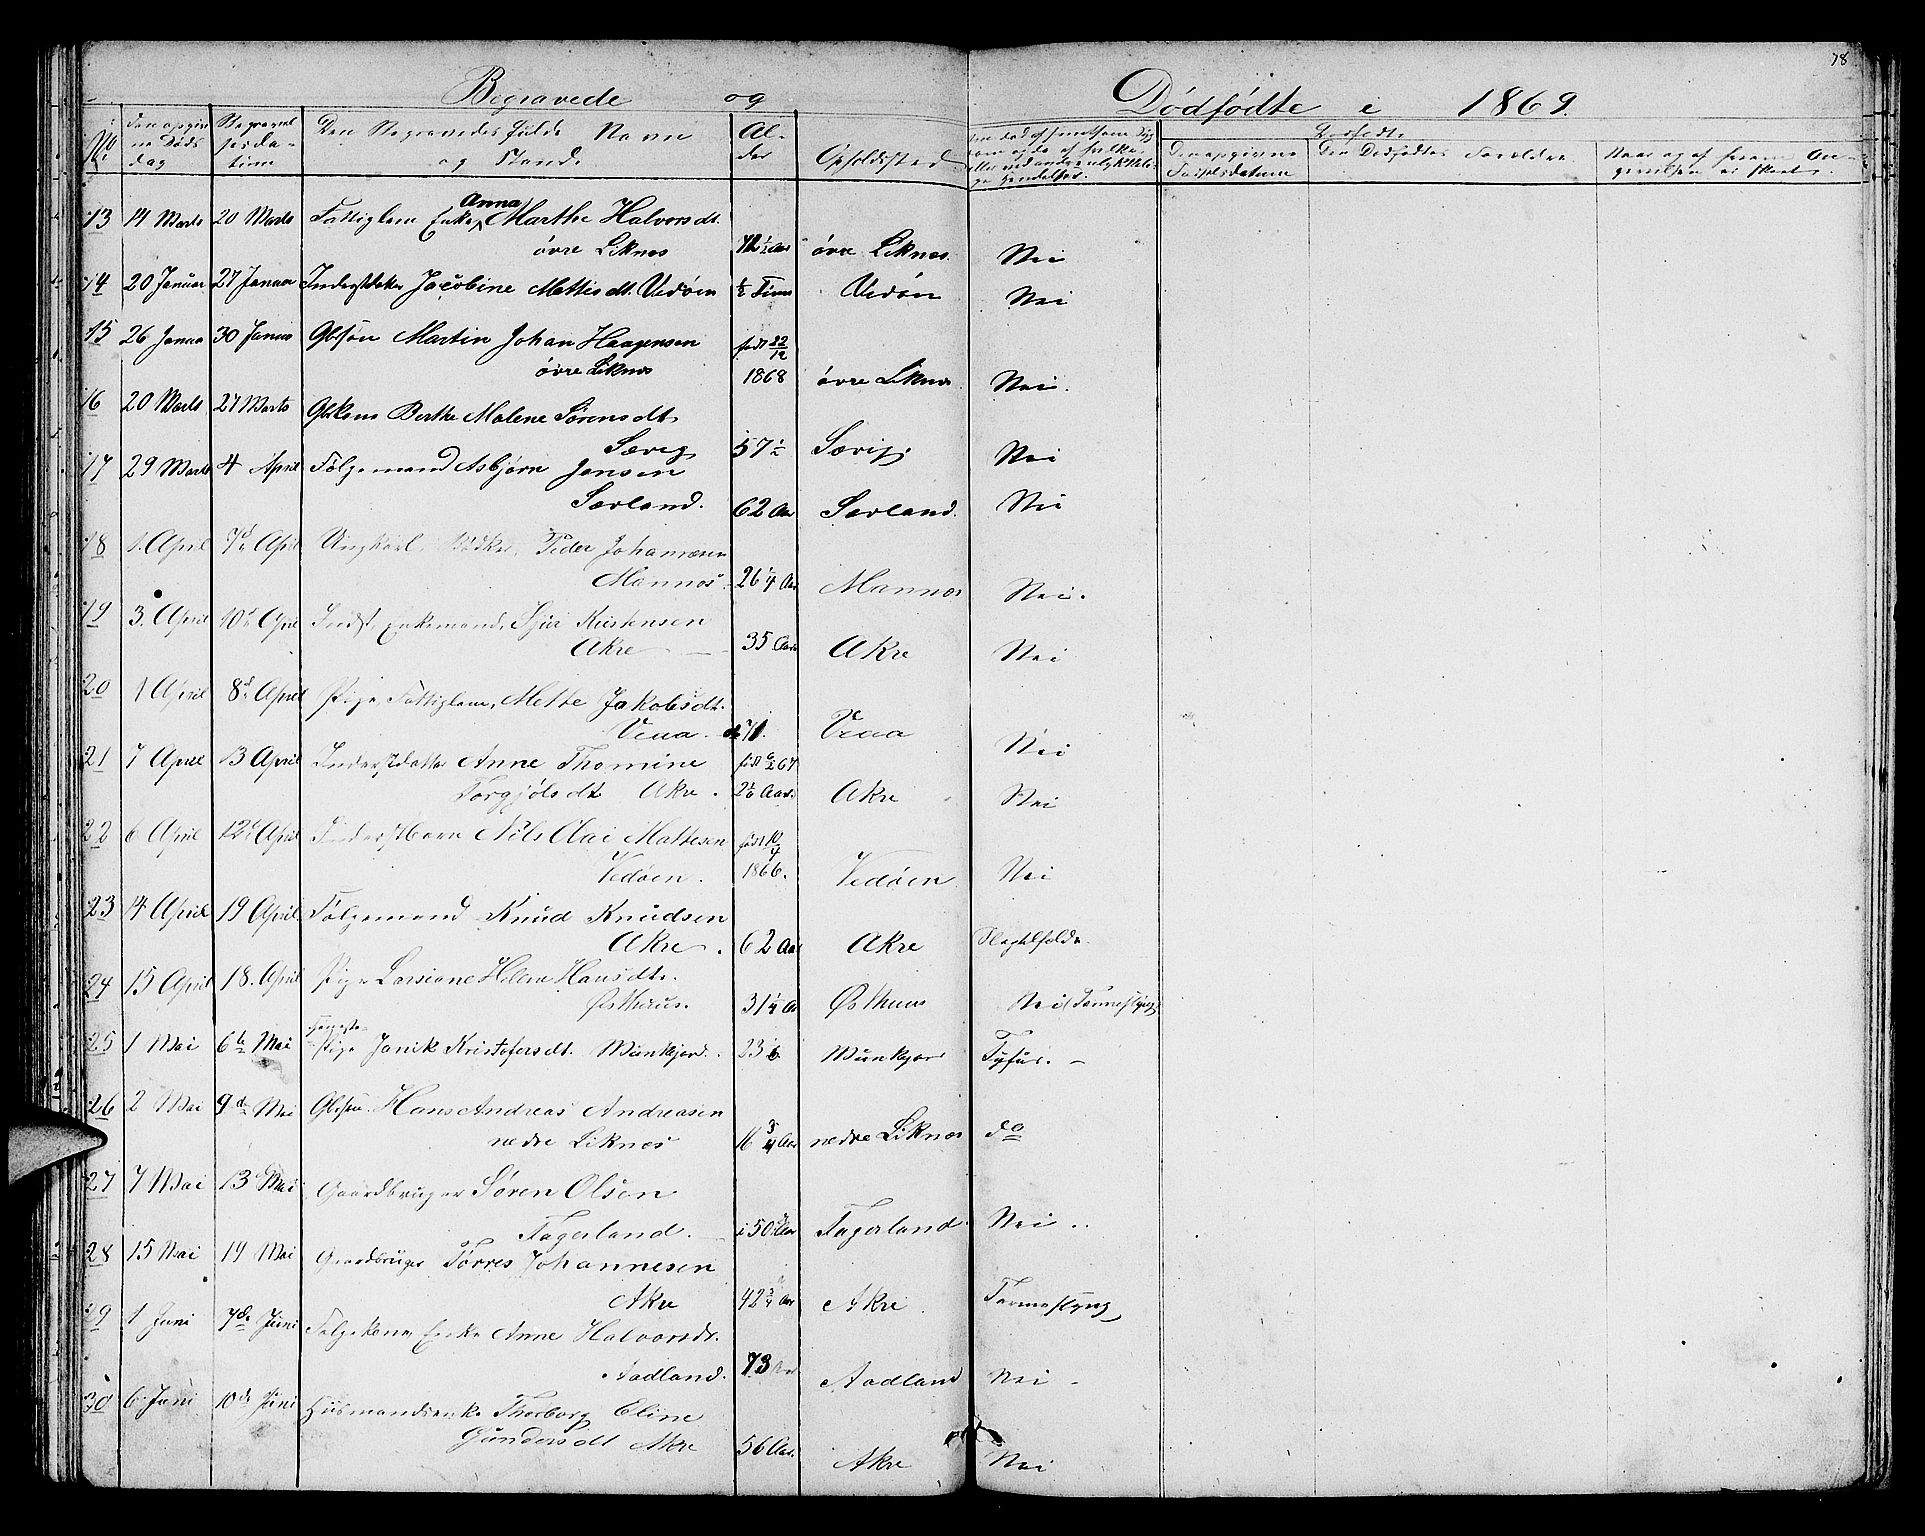 78
Begravede og Dødfødte i 1869.
No
Den opgivne Døds dag
Begravelsesdatum
Den Begravedes fulde Navn og Stand.
Alder
Opholdssted
Dødfødte
Den opgivne Fødselsdatum
Den Dødfødtes Forældre
13 14 Marts 20 Marts Fattiglem Enke Anna Marthe Halvorsdt.
øvre Liknes øvre Liknes. Nei
14 20 Januar 27 Januar Inderstdatter Jacobine Mattisdt. Vedøen ½ Time Vedøn Nei
15 26 Janua 30 Januar Gbsøn Martin Johan Haagensen født 22/12
øvre Liknes 1868 øvre Liknes Nei.
16 20 Marts 27 Marts Gbkone Berthe Malene Sørensdt.
Sævig 57½ Sævig. Nei
17 29 Marts 4 April Følgemand Asbjørn Jensen
Sørland. 62 Aar Sørland. Nei
18 1. April 7d April Ungkarl, Peder Johannesen
Mannes 26¼ Aar Mannes Nei.
19 3. April 10d April Indst. Enkemand, Sjur Kristensen
Akre 35 Aar Akre Nei
20 1 April 8d April Pige, Fattiglem, Mette Jakobsdt.
Veaa. 71. Veaa Nei
21 7 April 13 April Inderstdatter Anne Thomine født 67
Torgjølsdt Akre. Aar. Akre Nei
22 6 April 12d April Inderstbarn Nils Olai Mattesen født 10/4
Vedøen. 1866. Vedøen Nei
23 14 April 19 April Følgemand Knud Knudsen
Akre. 62 Aar Akre
24 15 April 18. April Pige Larsiane Helene Hansdt.
Østhuus. 31¼ A Østhuus Nei
25 1 Mai 6te Mai Pige Janik Kristofersdt. Munkejord. 23 Munkjor Tyfus.
26 2 Mai 9de Mai Gbsøn Hans Andreas Andreasen
nedre Liknes 16¾ Aar nedre Liknes do
27 7 Mai 13 Mai Gaardbruger Søren Olsen
Fagerland. 50 Aar Fagerland. Nei
28 15 Mai 19 Mai Gaardbruger Tørres Johannesen
Akre 42¾ Aar Akre
29 1 Juni 7de Juni Følgekone Enke Anne Halvorsdt.
Aadland. 73 Aar Aadland Nei
30 6. Juni 10de Juni Husmandsenke Thorborg Eline
Gundersdt Akre 56 Aar. Akre Nei